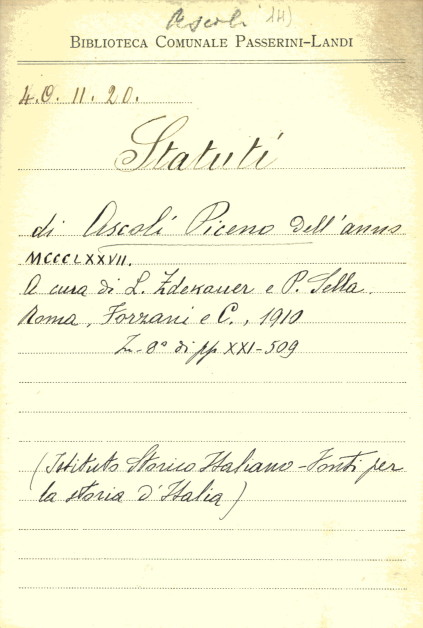 Ascoli 14)
BIBLIOTECA COMUNALE PASSERINI-LANDI
4.O. 11. 20.
Statuti
di Ascoli Piceno dell'anno
MCCCLXXVII.
A cura di L. Zdekauer e P. Sella.
Roma, Forzani e C., 1910
In-8° di pp XXI-509
(Istituto Storico Italiano-Fonti per
la storia d'Italia)